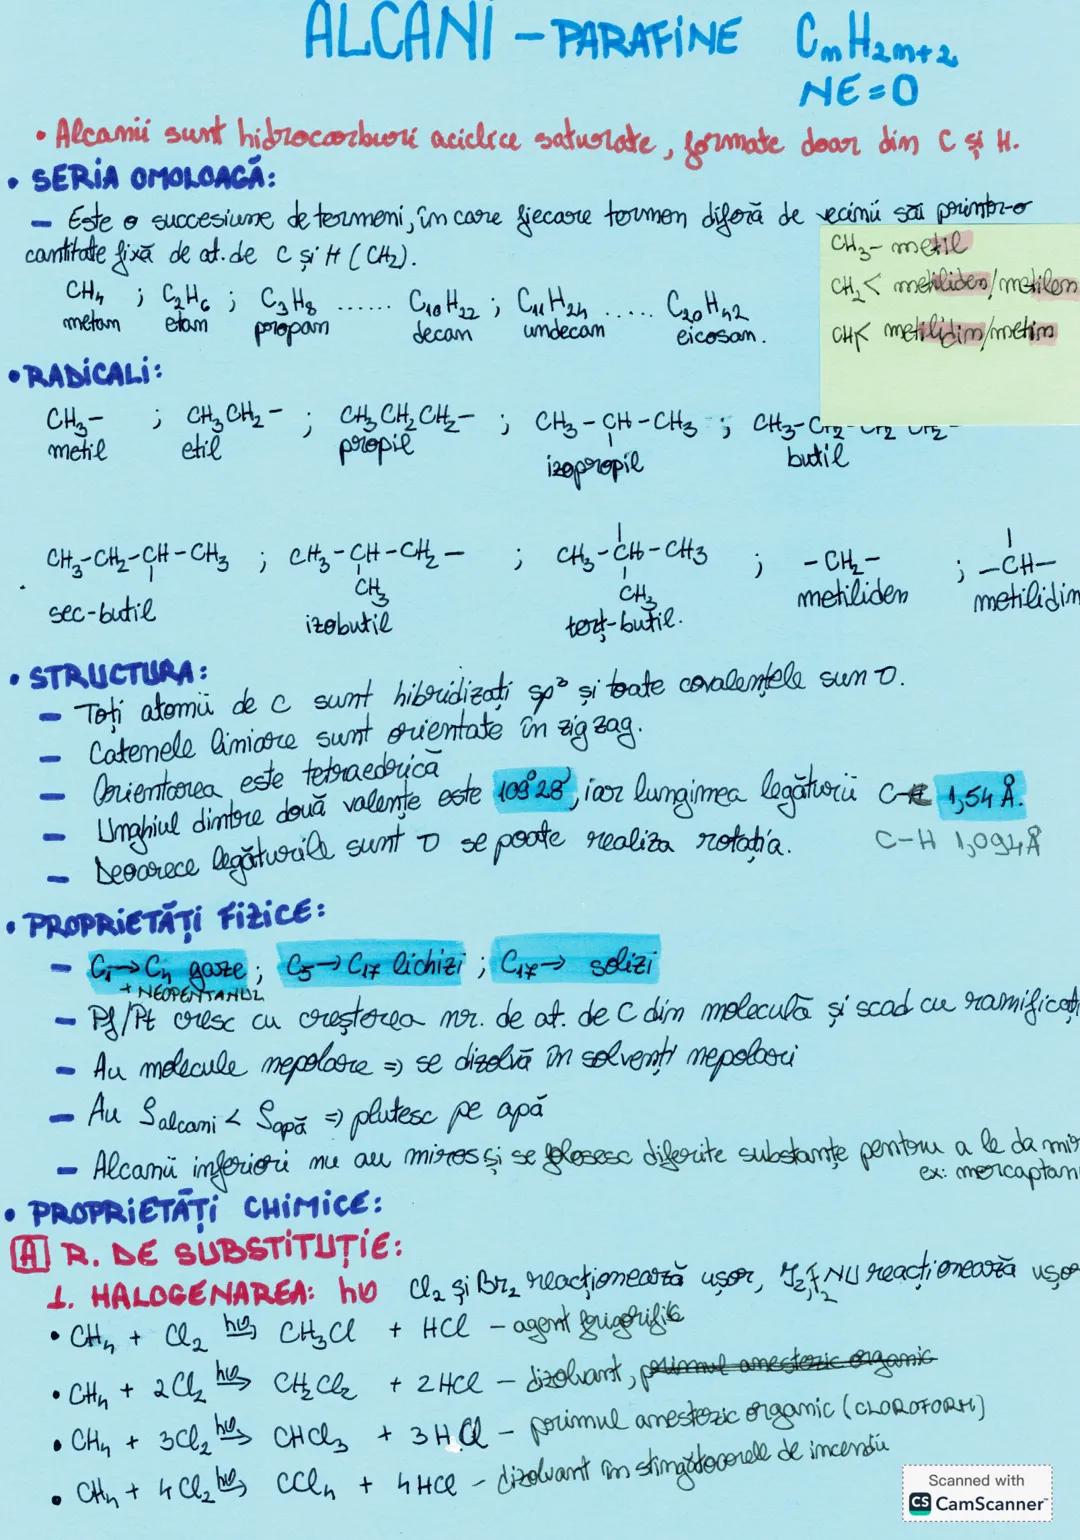 ALCANI - PARAFINE CnH2n+2
NE=0
• Alcanii sunt hidrocarburi aciclice saturate, formate doar din C și H.
• SERIA OMOLOAGĂ:
— Este o succesiune de termeni, în care fiecare termen diferă de vecinii săi printr-o
cantitate fixă de at. de C și H (CH2).
CH4 ; C2H6 ; C3H8 ...... C10H22 ; C11H24 ..... C20H42
metan etan propan decan undecan eicosan.
CH3- metil
CH2< metiliden/metilen
CH< metilidin/metin
• RADICALI:
CH3- ; CH3CH2- ; CH3CH2CH2- ; CH3-CH-CH3 ; CH3-CH2-CH2-CH2-
metil etil propil izopropil butil
CH3-CH2-CH-CH3 ; CH3-CH-CH2- ; CH3-CH-CH3 ; -CH2- ; -CH-
CH3 CH3
sec-butil izobutil terț-butil. metiliden metilidin
• STRUCTURA:
— Toți atomii de C sunt hibridizați sp3 și toate covalențele sunt σ.
— Catenele liniare sunt orientate în zig zag.
— Orientarea este tetraedrică
— Unghiul dintre două valențe este 109°28', iar lungimea legăturii C-C 1,54 Å.
— Deoarece legăturile sunt σ se poate realiza rotația. C-H 1,094 Å
• PROPRIETĂȚI FIZICE:
— C1→C4 gaze ; C5→C17 lichizi ; C17→ solizi
+ NEOPENTANUL
— Pf/Pt cresc cu creșterea nr. de at. de C din moleculă și scad cu ramificați
— Au molecule nepolare => se dizolvă în solvenți nepolari
— Au ρalcani < ρapă => plutesc pe apă
— Alcanii inferiori nu au miros și se folosesc diferite substanțe pentru a le da mir
ex: mercaptani
• PROPRIETĂȚI CHIMICE:
A R. DE SUBSTITUȚIE:
1. HALOGENAREA: hν Cl2 și Br2 reacționează ușor, I2, F2 NU reacționează ușor
• CH4 + Cl2 hν→ CH3Cl + HCl - agent frigorific
• CH4 + 2Cl2 hν→ CH2Cl2 + 2HCl - dizolvant, primul anestezic organic
• CH4 + 3Cl2 hν→ CHCl3 + 3HCl - primul anestezic organic (CLOROFORM)
• CH4 + 4Cl2 hν→ CCl4 + 4HCl - dizolvant în stingătoarele de incendiu
Scanned with
CS CamScanner